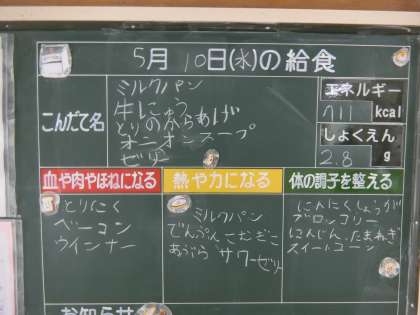 5月10日(水)の給食
こんだて名
ミルクパン
牛にゅう
とりのからあげ
オニオンスープ
ゼリー
エネルギー
711 kcal
しょくえん
2.8 g
血や肉やほねになる
とりにく
ベーコン
ウインナー
熱や力になる
ミルクパン
でんぷん こむぎこ
あぶら サワーゼリー
体の調子を整える
にんにく しょうが
ブロッコリー
にんじん たまねぎ
スイートコーン
お知らせ